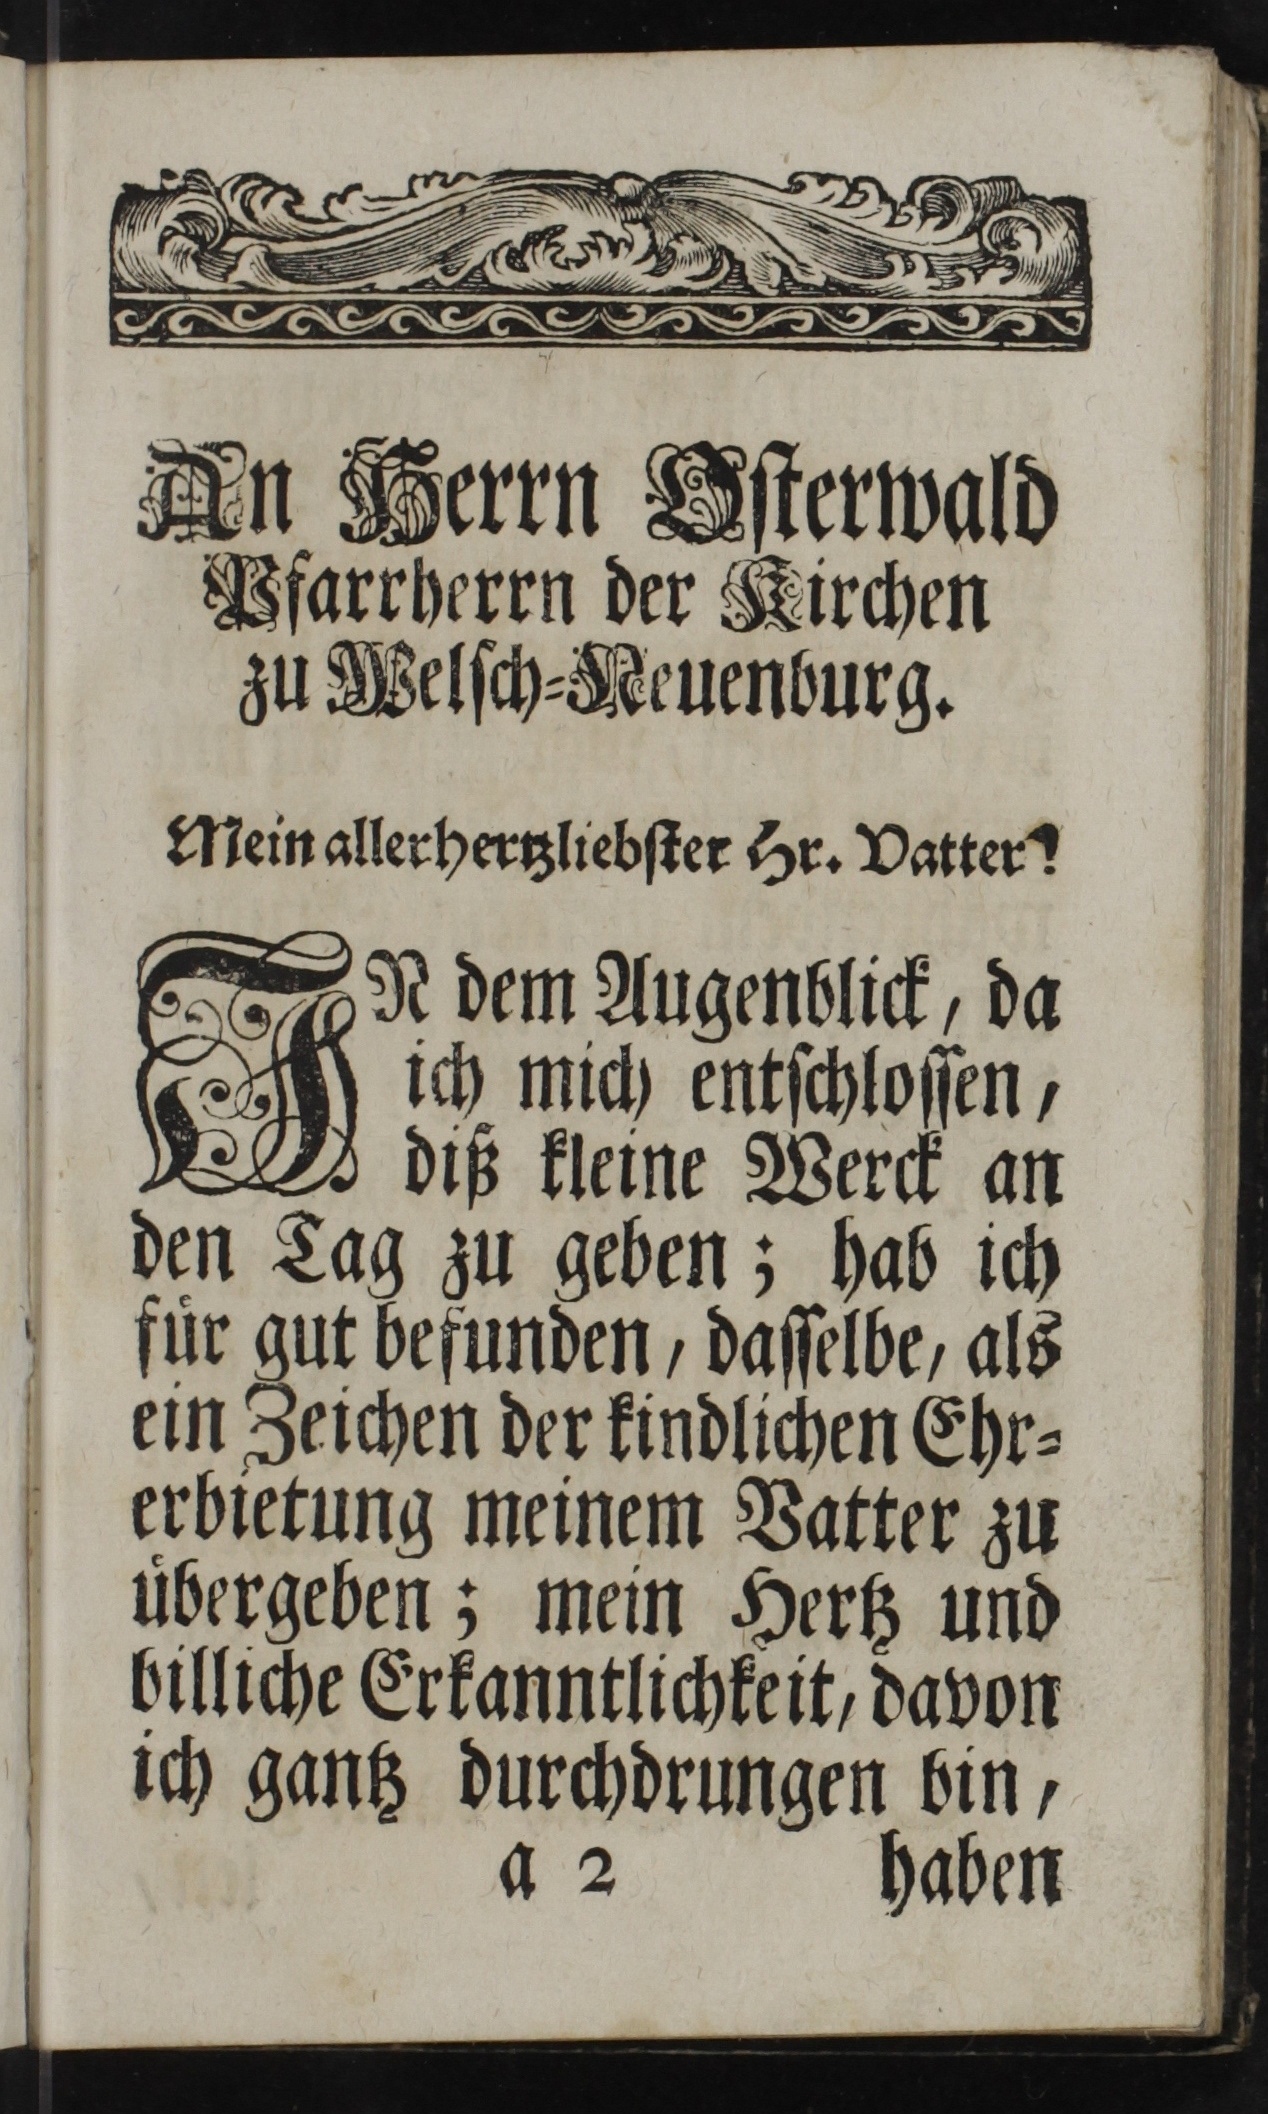 An Herrn Osterwald
Pfarrherrn der Kirchen
zu Welsch-Neuenburg.
Mein allerhertzliebster Hr. Vatter!
IN dem Augenblick, da
ich mich entschlossen,
diß kleine Werck an
den Tag zu geben; hab ich
fuͤr gut befunden, dasselbe, als
ein Zeichen der kindlichen Ehr-
erbietung meinem Vatter zu
uͤbergeben; mein Hertz und
billiche Erkanntlichkeit, davon
ich gantz durchdrungen bin,
a 2 haben